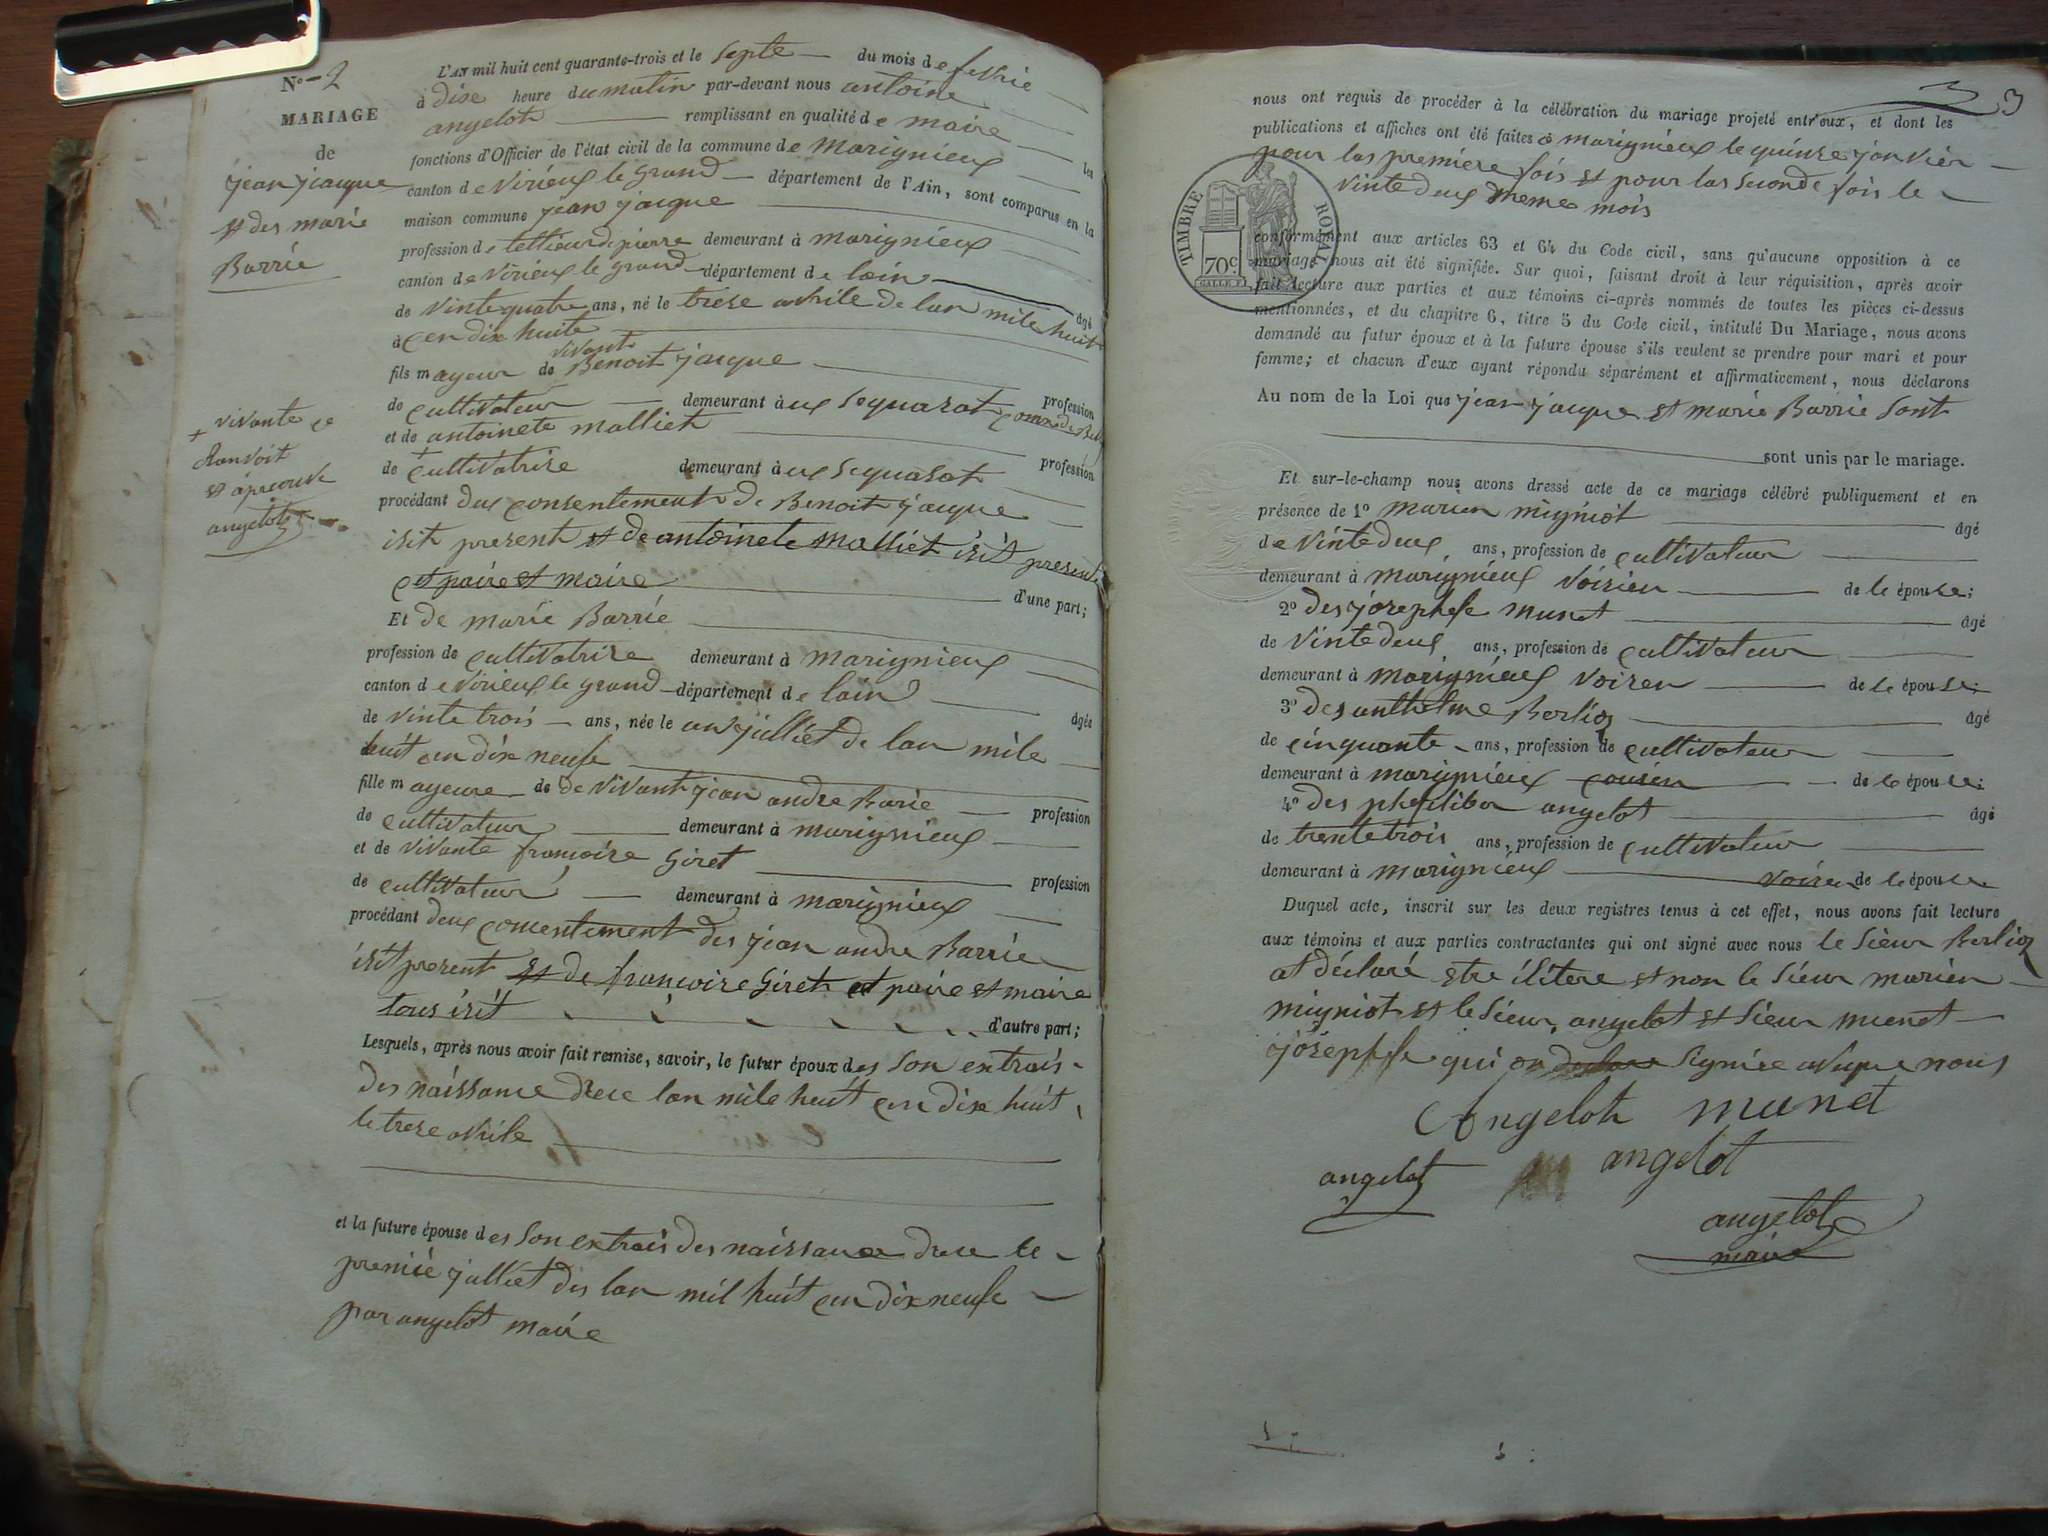 N° 2
MARIAGE
de
jean jacque
et des marie
Barrie
L'AN mil huit cent quarante-trois et le septe du mois de fevrie
à dixe heure du matin par-devant nous antoine
angelot remplissant en qualité de maire les
fonctions d'Officier de l'état civil de la commune de marignieux
canton de Virieux le grand département de l'Ain, sont comparus en la
maison commune jean jacque
profession de tellieur de pierre demeurant à marignieux
canton de Virieux le grand département de lain âgé
de vinte quatre ans, né le treze avrile de lan mile huit
à cen dix huite
fils mayeur de vivant Benoit jacque profession
de cultivateur demeurant à
et de antoinete malliet profession
+ vivante
Ranvoit
et aprouve
angelot
de cultivatrise demeurant à
procédant du consentement de Benoit jacque
isit present et de antoinete malliet isit present
et paire et maire d'une part;
Et de marie Barrie
profession de cultivatrise demeurant à marignieux
canton de Virieux le grand département de lain âgée
de vinte trois ans, née le julliet de lan mile
huit cen dix neufe
fille mayeure de de vivant jean andre Barie profession
de cultivateur demeurant à marignieux
et de vivante françoise Giret profession
de cultivateur demeurant à marignieux
procédant deux consentement des jean andre Barrie
isit present et de françoise Giret et paire et maire
tous isit d'autre part;
Lesquels, après nous avoir fait remise, savoir, le futur époux des son extrais
des naissance lan mile huit cen dix huit
le treze avrile
et la future épouse des son extrais des naissance le
premie julliet des lan mil huit cen dix neufe
par angelot maire
3 3
nous ont requis de procéder à la célébration du mariage projeté entr'eux, et dont les
publications et affiches ont été faites à marignieux le quinze janvier
pour las premiere fois et pour las seconde fois le
vinte deux meme mois
TIMBRE ROYAL
70c
conformément aux articles 63 et 64 du Code civil, sans qu'aucune opposition à ce
mariage nous ait été signifiée. Sur quoi, faisant droit à leur réquisition, après avoir
fait lecture aux parties et aux témoins ci-après nommés de toutes les pièces ci-dessus
mentionnées, et du chapitre 6, titre 5 du Code civil, intitulé Du Mariage, nous avons
demandé au futur époux et à la future épouse s'ils veulent se prendre pour mari et pour
femme; et chacun d'eux ayant répondu séparément et affirmativement, nous déclarons
Au nom de la Loi que jean jacque et marie Barrie sont
sont unis par le mariage.
Et sur-le-champ nous avons dressé acte de ce mariage célébré publiquement et en
présence de 1° marien migniot âgé
de vinte deux ans, profession de cultivateur
demeurant à marignieux voisien de le épouse;
2° des josephfe munet âgé
de vinte deux ans, profession de cultivateur
demeurant à marignieux voizen de le épouse;
3° des anthelme Berlioz âgé
de cinquante ans, profession de cultivateur
demeurant à marignieux cousin de le épouse;
4° des angelot âgé
de trente trois ans, profession de cultivateur
demeurant à marignieux voizen de le épouse
Duquel acte, inscrit sur les deux registres tenus à cet effet, nous avons fait lecture
aux témoins et aux parties contractantes qui ont signé avec nous le Sieur Berlioz
at déclaré etre ilitere et non le Sieur marien
migniot et le Sieur angelot et Sieur munet
josephfe qui on signiée aveque nous
Angelot munet
angelot angelot
angelot
maire